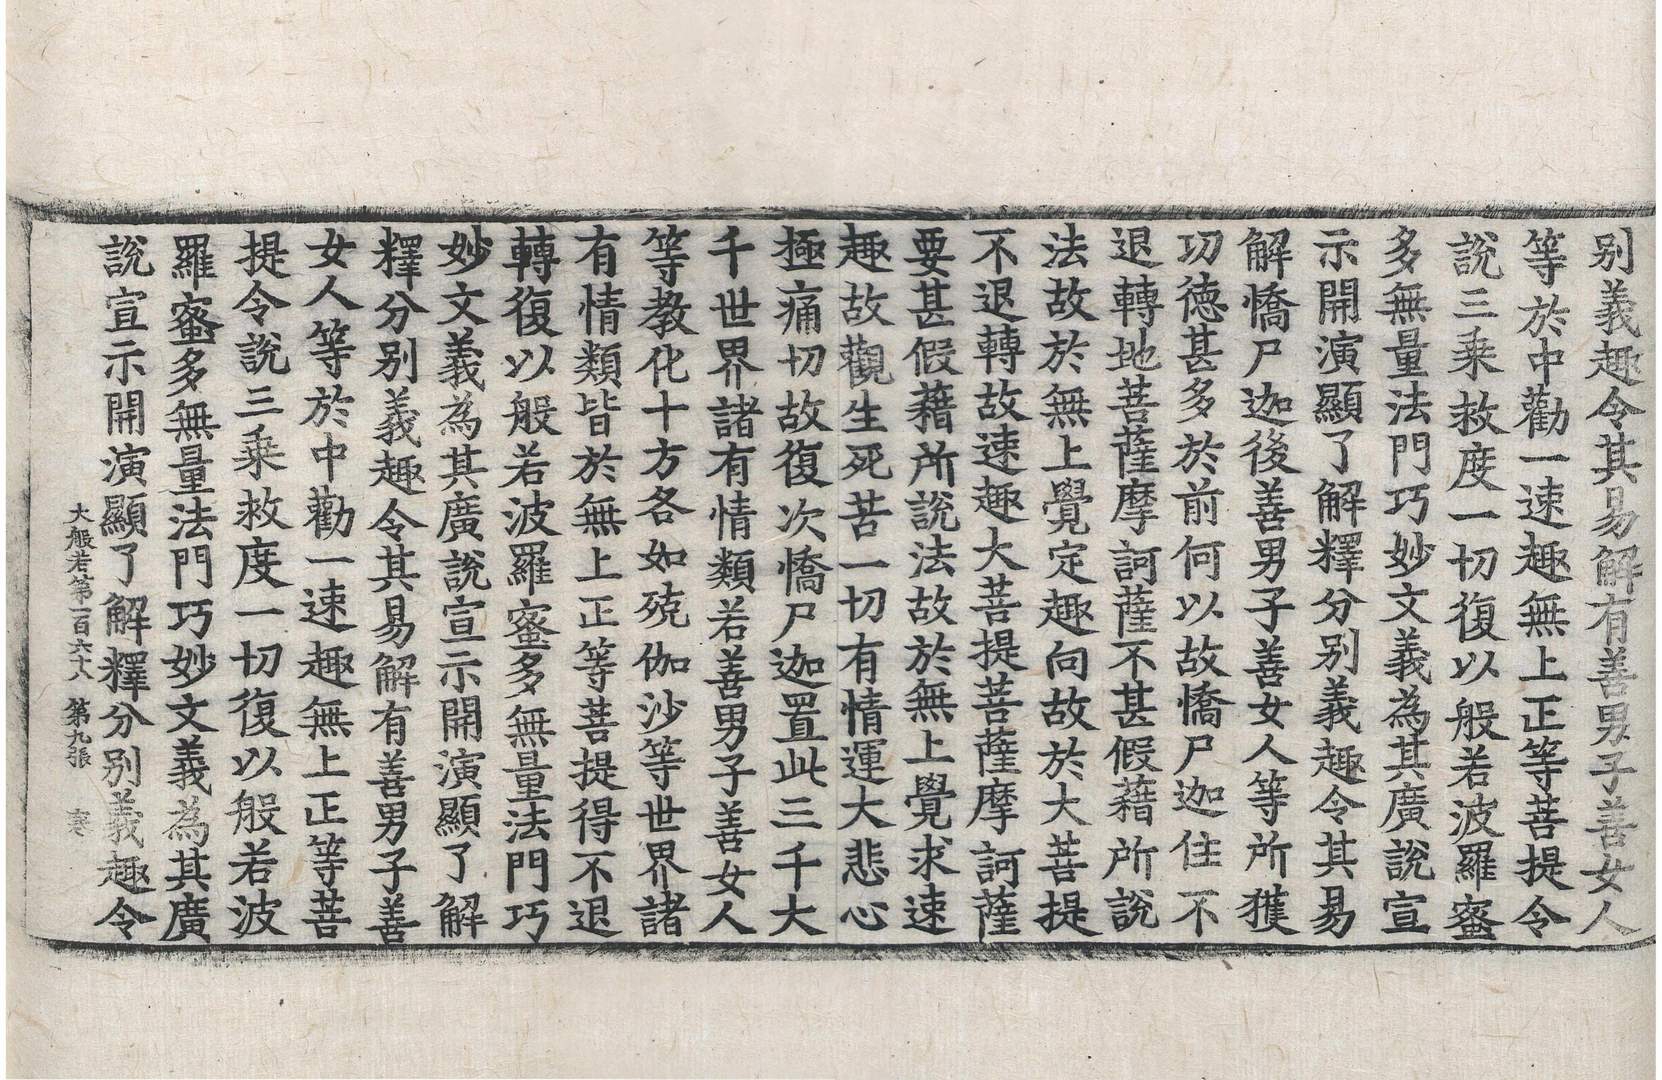 别義趣令其易解有善男子善女人
等於中勸一速趣無上正等菩提令
說三乘救度一切復以般若波羅蜜
多無量法門巧妙文義為其廣說宣
示開演顯了解釋分别義趣令其易
解憍尸迦後善男子善女人等所獲
功德甚多於前何以故憍尸迦住不
退轉地菩薩摩訶薩不甚假藉所說
法故於無上覺定趣向故於大菩提
不退轉故速趣大菩提菩薩摩訶薩
要甚假藉所說法故於無上覺求速
趣故觀生死苦一切有情運大悲心
極痛切故復次憍尸迦置此三千大
千世界諸有情類若善男子善女人
等教化十方各如殑伽沙等世界諸
有情類皆於無上正等菩提得不退
轉復以般若波羅蜜多無量法門巧
妙文義為其廣說宣示開演顯了解
釋分别義趣令其易解有善男子善
女人等於中勸一速趣無上正等菩
提令說三乘救度一切復以般若波
羅蜜多無量法門巧妙文義為其廣
說宣示開演顯了解釋分别義趣令
大般若第一百六十八 第九張 寒